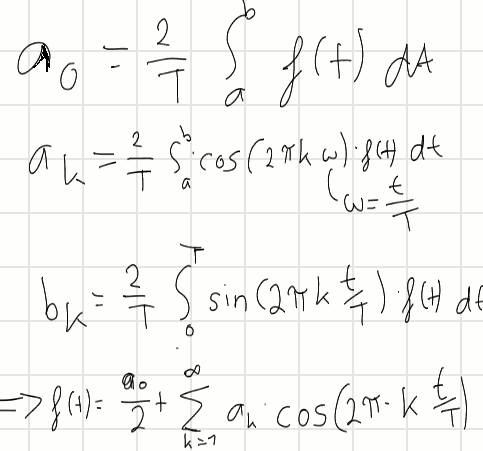 a₀ = 2/T ∫ₐᵇ f(t) dt
aₖ = 2/T ∫ₐᵇ cos(2πk ω) · f(t) dt
ω = t/T
bₖ = 2/T ∫₀ᵀ sin(2πk t/T) · f(t) dt
=> f(t) = a₀/2 + ∑ₖ₌₁^∞ aₖ · cos(2π · k t/T)